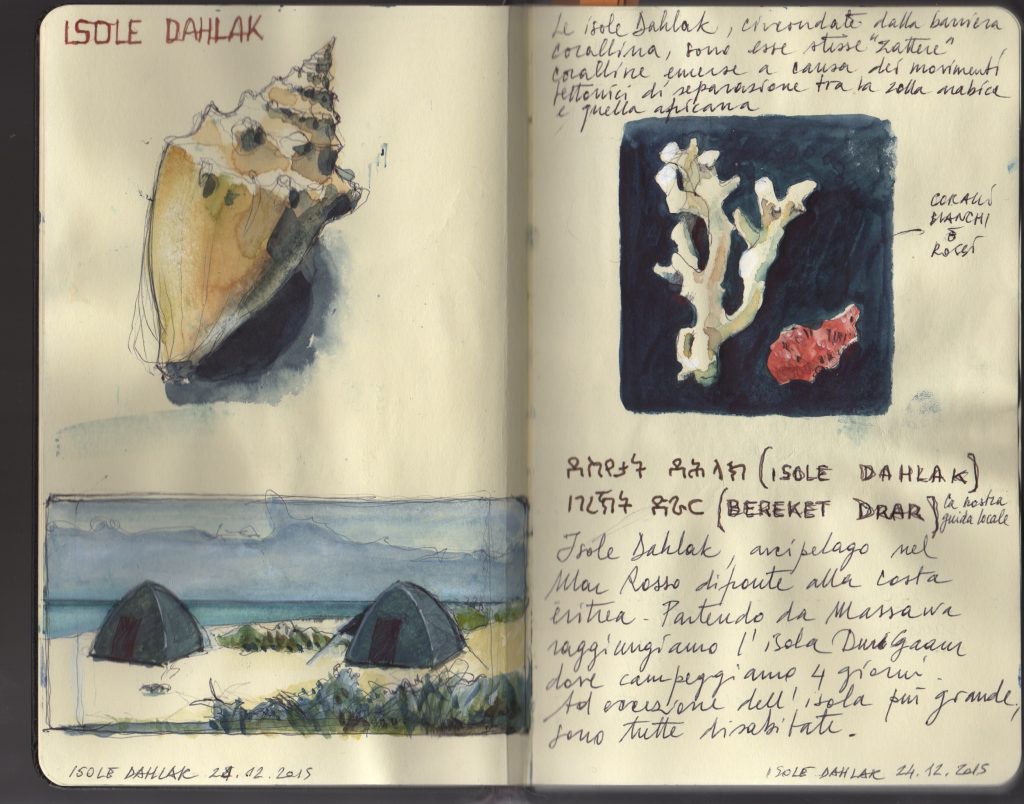 ISOLE DAHLAK
ISOLE DAHLAK 24.12.2015
Le isole Dahlak, circondate dalla barriera
corallina, sono esse stesse "zattere"
coralline emerse a causa dei movimenti
tettonici di separazione tra la zolla arabica
e quella africana
CORALLI
BIANCHI
E
ROSSI
ደሴታት ዳሕላክ (ISOLE DAHLAK)
በረኸት ድራር (BEREKET DRAR) la nostra
guida locale
Isole Dahlak, arcipelago nel
Mar Rosso difronte alla costa
eritrea. Partendo da Massawa
raggiungiamo l'isola
dove campeggiamo 4 giorni.
Ad eccezione dell'isola più grande,
sono tutte disabitate.
ISOLE DAHLAK 24.12.2015